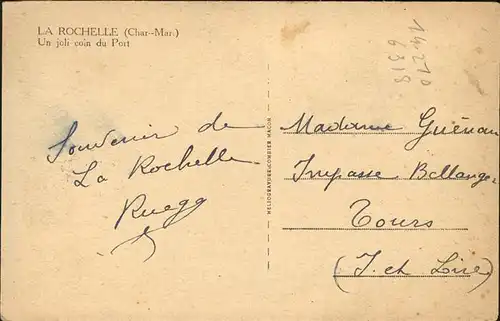 LA ROCHELLE (Char.-Mar.)
Un joli coin du Port
Souvenir de
La Rochelle
Ruegg
HELIOGRAVURE-COMBIER MACON
14210
6318
Madame Guénan
Impasse Bellanger
Tours
(I. et Loire)